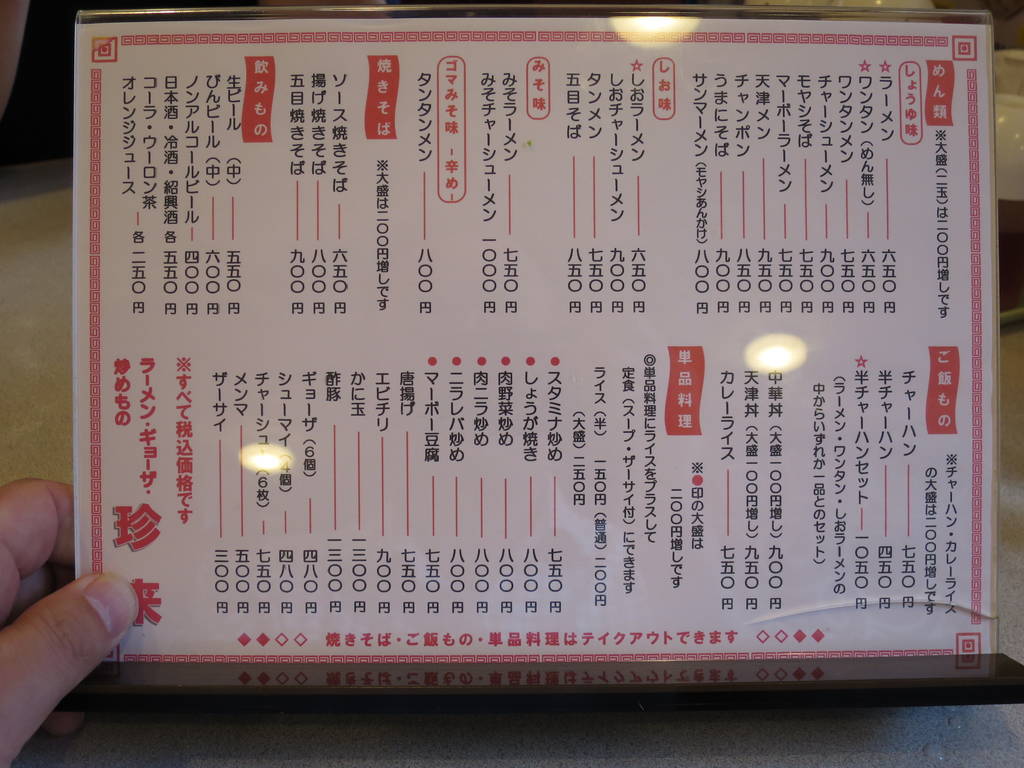 めん類 ※大盛(二玉)は二〇〇円増しです
しょうゆ味
☆ラーメン 六五〇円
☆ワンタン(めん無し) 六五〇円
ワンタンメン 七五〇円
チャーシューメン 九〇〇円
モヤシそば 七五〇円
マーボーラーメン 七五〇円
天津メン 九五〇円
チャンポン 八五〇円
うまにそば 九〇〇円
サンマーメン(モヤシあんかけ) 八〇〇円
しお味
☆しおラーメン 六五〇円
しおチャーシューメン 九〇〇円
タンメン 七五〇円
五目そば 八五〇円
みそ味
みそラーメン 七五〇円
みそチャーシューメン 一〇〇〇円
ゴマみそ味 -辛め-
タンタンメン 八〇〇円
焼きそば ※大盛は二〇〇円増しです
ソース焼きそば 六五〇円
揚げ焼きそば 八〇〇円
五目焼きそば 九〇〇円
飲みもの
生ビール(中) 五五〇円
びんビール(中) 六〇〇円
ノンアルコールビール 四〇〇円
日本酒・冷酒・紹興酒 各 五五〇円
コーラ・ウーロン茶
オレンジジュース 各 二五〇円
ご飯もの ※チャーハン・カレーライス
の大盛は二〇〇円増しです
チャーハン 七五〇円
半チャーハン 四五〇円
☆半チャーハンセット 一〇五〇円
(ラーメン・ワンタン・しおラーメンの
中からいずれか一品とのセット)
中華丼(大盛一〇〇円増し) 九〇〇円
天津丼(大盛一〇〇円増し) 九五〇円
カレーライス 七五〇円
単品料理 ※●印の大盛は
二〇〇円増しです
◎単品料理にライスをプラスして
定食(スープ・ザーサイ付)にできます
ライス(半) 一五〇円(普通)二〇〇円
(大盛)二五〇円
●スタミナ炒め 七五〇円
●しょうが焼き 八〇〇円
●肉野菜炒め 八〇〇円
●肉ニラ炒め 八〇〇円
●ニラレバ炒め 八〇〇円
●マーボー豆腐 七五〇円
唐揚げ 七五〇円
エビチリ 九〇〇円
かに玉 一三〇〇円
酢豚 一三〇〇円
ギョーザ(6個) 四八〇円
シューマイ(4個) 四八〇円
チャーシュー(6枚) 七五〇円
メンマ 五〇〇円
ザーサイ 三〇〇円
※すべて税込価格です
ラーメン・ギョーザ・
炒めもの
珍来
◆◆◇◇ 焼きそば・ご飯もの・単品料理はテイクアウトできます ◇◇◆◆